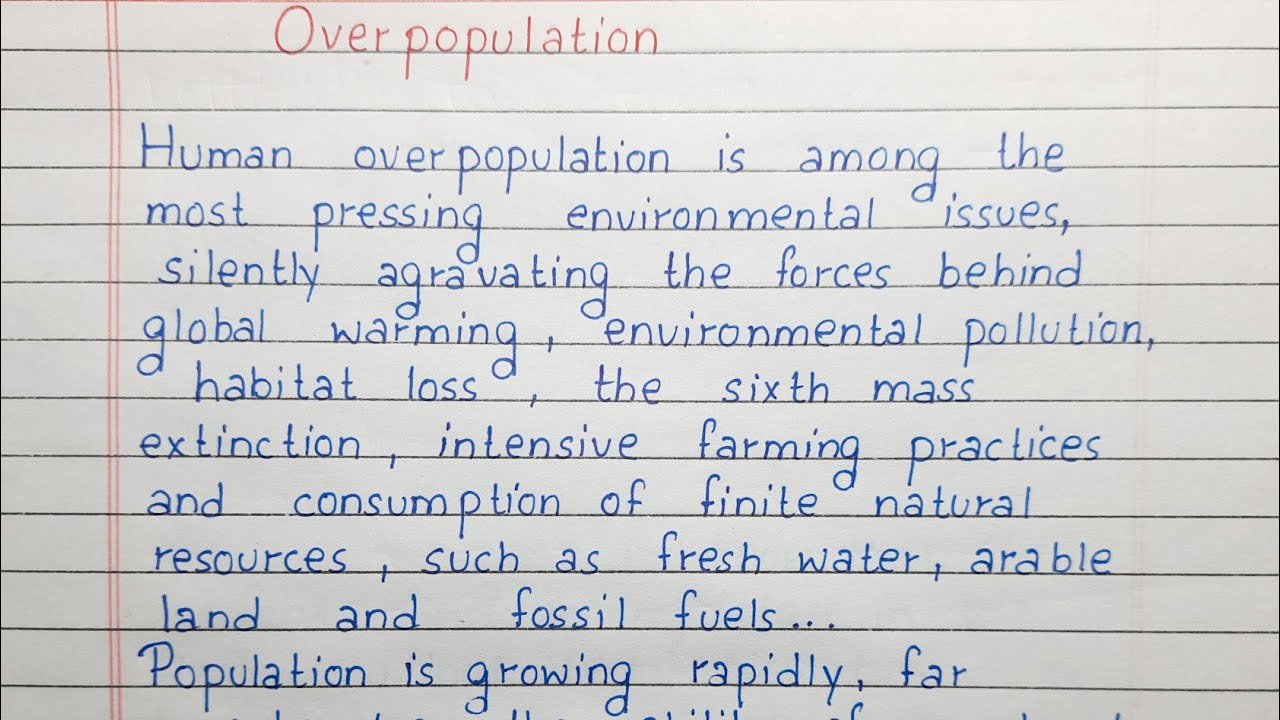 Overpopulation
Human overpopulation is among the
most pressing environmental issues,
silently agravating the forces behind
global warming, environmental pollution,
habitat loss, the sixth mass
extinction, intensive farming practices
and consumption of finite natural
resources, such as fresh water, arable
land and fossil fuels...
Population is growing rapidly, far